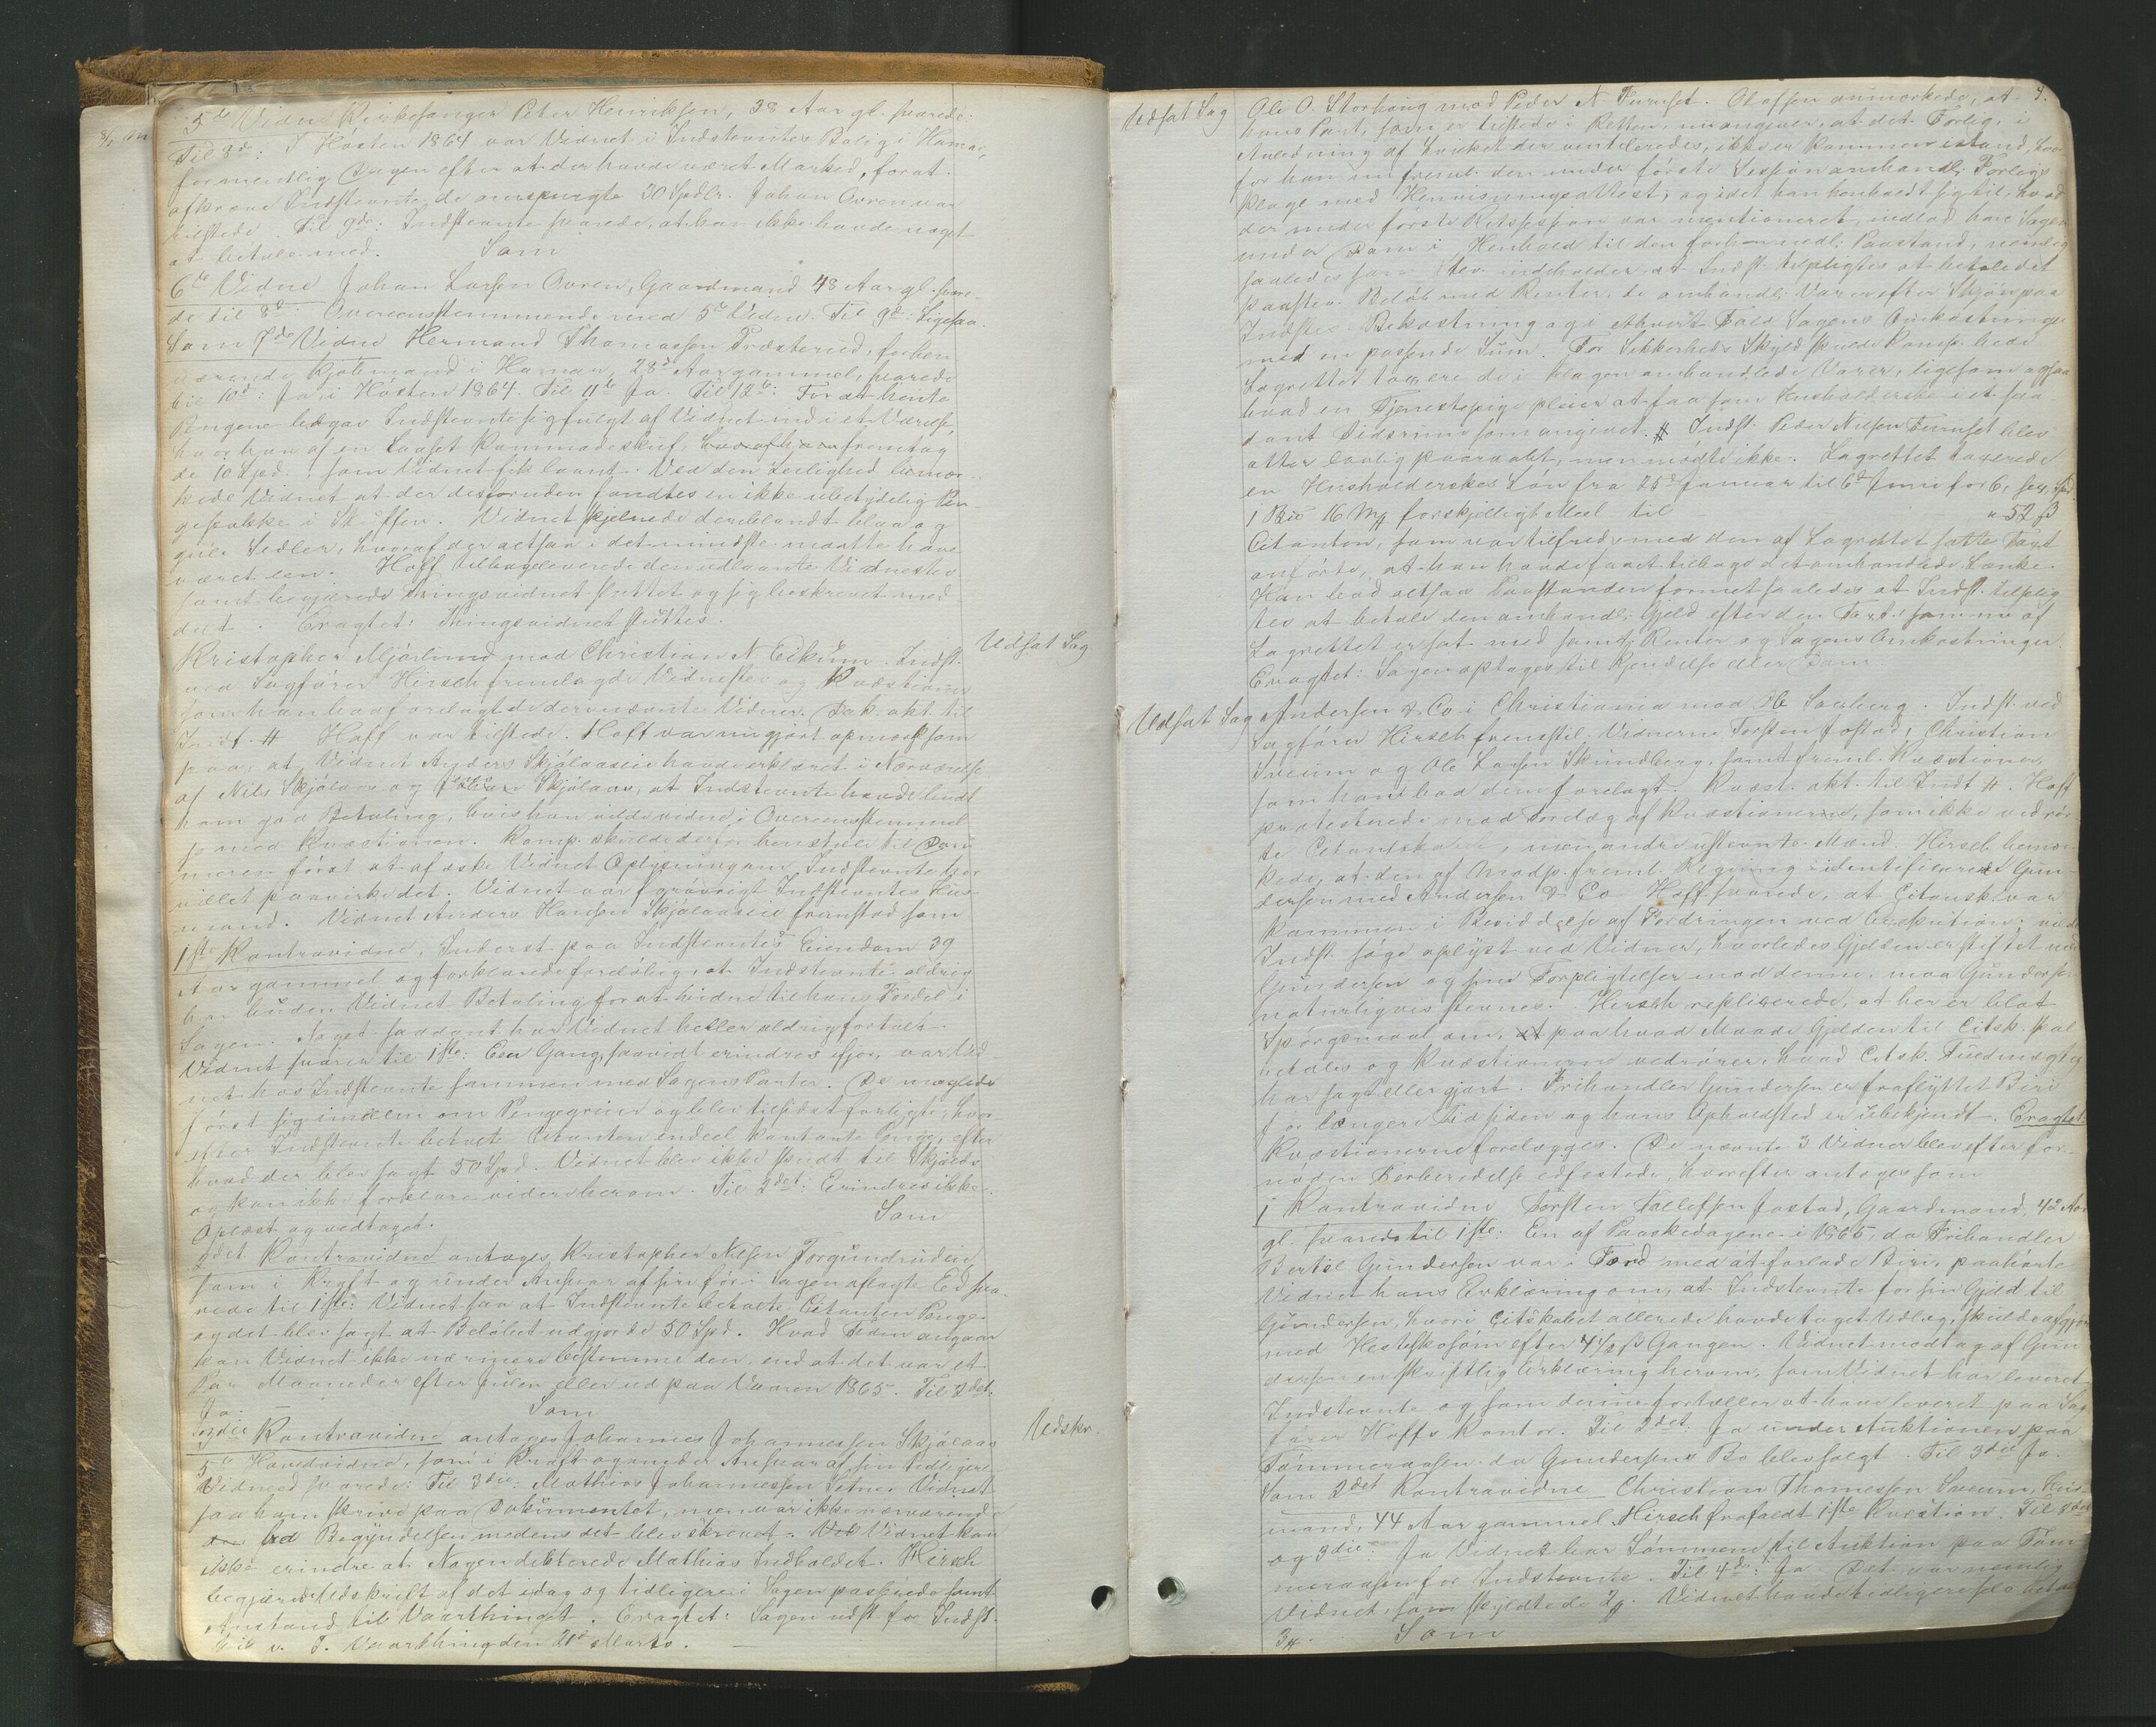 5te Vidne Kirkesanger Peter Henriksen, 38 Aar gl. svarede:
Til 8de: I Høsten 1864 var Vidnet i Indstevntes Bolig i Hamar,
formentlig Dagen efter at der havde været Marked, for at
afkræve Indstevnte de omspurgte 30 Spdlr. Johan Ovren var
tilstede. Til 9de: Indstevnte svarede, at han ikke havde noget
at betale med. Som
6te Vidne Johan Larsen Ovren, Gaardmand 48 Aar gl. svare-
de til 8de: Overensstemmende med 5te Vidne. Til 9de: Ligesaa.
Som 7de Vidne Hermand Thomassen Præsterud, forhen
værende Kjøbmand i Hamar, 28de Aar gammel, svarede
til 10de: Ja, i Høsten 1864. Til 11te Ja. Til 12te: For at hente
Pengene begav Indstevnte sig fulgt af Vidnet ind i et Værelse,
hvor han af en laaset Kommodeskuf fremtog
de 10 Spd., som Vidnet fik laant. Ved den Leilighed bemær-
kede Vidnet at der desforuden fandtes en ikke ubetydelig Pen-
gepakke i Skuffen. Vidnet skjelnede deriblandt blaa og
gule Sedler, hvoraf der altsaa i det mindste maatte have
været een. Hoff tilbageleverede den udlaante Vidnestev
samt begjærede Thingsvidnet sluttet og sig beskrevet med-
delt. Eragtet: Thingsvidnet sluttes.
Udsat Sag
Kristopher Mjørlund mod Christian N Eikum. Indst.
ved Sagfører Hirsch fremlagde Vidnestev og Kvæstioner
som han bad forelagt de deri nævnte Vidner. Dok. akt. til
Indt. # Hoff var tilstede. Hoff var nu gjort opmærksom
paa, at Vidnet Anders Skjølaaseie havde erklæret i Nærværelse
af Nils Skjølaas og Johan Skjølaas, at Indstevnte havde budt
ham god Betaling, hvis han vilde vidne i Overensstemmel
se med Kvæstionen. Komp. skulde derfor henstille til Dom
meren først at afæske Vidnet Oplysning om Indstevnte har
villet paavirke det. Vidnet var forøvrigt Indstevntes Hus-
mand. Vidnet Anders Hansen Skjølaaseie fremstod som
1ste Kontravidne, Inderst paa Indstevntes Eiendom 39
Aar gammel og forklarede foreløbig, at Indstevnte aldrig
har buden Vidnet Betaling for at vidne til hans Fordel i
Sagen. Noget saadant har Vidnet heller aldrig fortalt.
Vidnet svarer til 1ste: Een Gang, saavidt erindres ifjor, var Vid-
net hos Indstevnte sammen med Sagens Parter. De mæglede
først sig imellem om Pengegreier og blev tilsidst forligte, hvor
efter Indstevnte betalte Citanten endeel kontante Penge, efter
hvad der blev sagt 50 Spd. Vidnet blev ikke skudt til Skjæls
og kan ikke forklare videre herom. Til 2det: Erindres ikke.
Oplæst og vedtaget. Som
2det Kontravidne antoges Kristopher Nilsen Torgunrudeie
som i Kraft og under Ansvar af sin før i Sagen aflagte Ed sva-
rede til 1ste: Vidnet saa at Indstevnte betalte Citanten Penge
og det blev sagt at Beløbet udgjorde 50 Spd. Hvad Tiden angaar
kan Vidnet ikke nærmere bestemme den, end at det var et
Par Maaneder efter Julen eller ud paa Vaaren 1865. Til 2det:
Ja. Som
3die Kontravidne antoges Johannes Johannessen Skjølaas
Udskr.
5te Hovedvidne, som i Kraft og under Ansvar af sin tidligere
Vidneed svarede: Til 3die: Mathias Johannessen Sætne. Vidnet
saa ham skrive paa Dokumentet, men var ikke nærværende
ved Begyndelsen medens det blev skrevet. Vidnet kan
ikke erindre at Nogen dikterede Mathias Indholdet. Hirsch
begjærede Udskrift af det idag og tidligere i Sagen passerede samt
Anstand til Vaarthinget. Eragtet: Sagen udst for Indst.
til v. T. Vaarthing den 21de Marts.
9.
Udsat Sag
Ole O. Storhaug mod Peder N Furuset. Olafsen anmærkede, at
hans Part, som er tilstede i Retten, nu angiver, at det Forlig, i
Anledning af hvilket der ventileredes, ikke er kommen istand, hvor
for han nu freml. den under første Session omhandl. Forligs
klage med Henvisningsattest, og idet han henholdt sig til, hvad
der under første Retssession var mentioneret, indlod han Sagen
under Dom i Henhold til den forhen nedl. Paastand, nemlig
saaledes som Stev. indeholder at Indst. tilpligtes at betale det
paastev. Beløb med Renter, de omhandl. Varer efter Skjøn paa
Indstes Bekostning og i ethvert Fald Sagens Omkostninger
med en passende Sum. For Sikkerheds Skyld skulde Komp. bede
Lagrettet taxere de i Klagen omhandlede Varer, ligesom ogsaa
hvad en Tjenestepige pleier at faa som Husholderske i et saa
dant Tidsrum som angivet. # Indst. Peder Nilsen Furuset blev
atter lovlig paaraabt, men mødte ikke. Lagrettet taxerede
en Husholderskes Løn fra 25de Januar til 6te Juni for 6, sex, Spd.
1 Bis 16 Mk forskjelligt Meel til " 52 ß
Citanten, som var tilfreds med den af Lagrettet satte Taxt
anførte, at han havde faaet tilbage det omhandlede Lænke.
Han bad altsaa Paastanden formet saaledes at Indst. tilplig
tes at betale den omhandl. Gjeld efter den Taxt som nu af
Lagrettet er sat med samt Renter og Sagens Omkostninger.
Eragtet: Sagen optages til Kjendelse eller Dom.
Udsat Sag
Andersen & Co i Christiania mod Ole Sæterberg. Indst. ved
Sagfører Hirsch fremstil. Vidnerne Torsten Jostad, Christian
Sveum og Ole Larsen Skundberg, samt freml. Kvæstioner,
som han bad dem forelagt. Kvæst. akt. til Indt #. Hoff
protesterede mod Forelæg af Kvæstionerne, som ikke vedrør
te Citantskabet, men andre ustevnte Mænd. Hirsch bemær
kede, at den af Modp. freml. Regning identificerede Gun-
dersen med Andersen & Co. Hoff svarede, at Citantsk. var
kommen i Besiddelse af Fordringen ved Exekution; vilde
Indst. søge oplyst ved Vidner, hvorledes Gjelden er stiftet med
Gundersen og sine Forpligtelser mod denne, maa Gundersen
naturligvis stevnes. Hirsch replicerede, at her er blot
Spørgsmaal om, paa hvad Maade Gjelden til Citsk. skal
betales og Kvæstionerne vedrører, hvad Citsk. Fuldmægtig
har sagt eller gjort. Frihandler Gundersen er fraflyttet Biri
for længere Tid siden og hans Opholdsted er ubekjendt. Eragtet:
Kvæstionerne forelægges. De nævnte 3 Vidner blev efter for-
nøden Forberedelse edfæstede, hvorefter antoges som
1 Kontravidne Torsten Tollefsen Jostad, Gaardmand, 42 Aar
gl. svarede til 1ste: En af Paaskedagene i 1865, da Frihandler
Bertel Gundersen var i Færd med at forlade Biri, paahørte
Vidnet hans Erklæring om, at Indstevnte for sin Gjeld til
Gundersen, hvori Citskabet allerede havde taget Udlæg, skulde afgjøre
med Hesteskosøm efter 4 1/2 ß Gangen. Vidnet modtog af Gun
dersen en skriftlig Erklæring herom, som Vidnet har leveret
Indstevnte og som denne fortæller at have leveret paa Sag
fører Hoffs Kontor. Til 2det: Ja under Auktionen paa
Tømmeraasen da Gundersens Bo blev solgt. Til 3die Ja.
Som 2det Kontravidne Christian Thomesen Sveum, Hus-
mand, 44 Aar gammel. Hirsch frafaldt 1ste Kvæstion. Til 2det
og 3die Ja Vidnet bar Sømmene til Auktion paa Tøm
meraasen for Indstevnte. Til 4de: Ja. Det var nemlig
Vidnet, som skyldte de 2 #. Vidnet havde tidligere selv betalt
3 #. Som